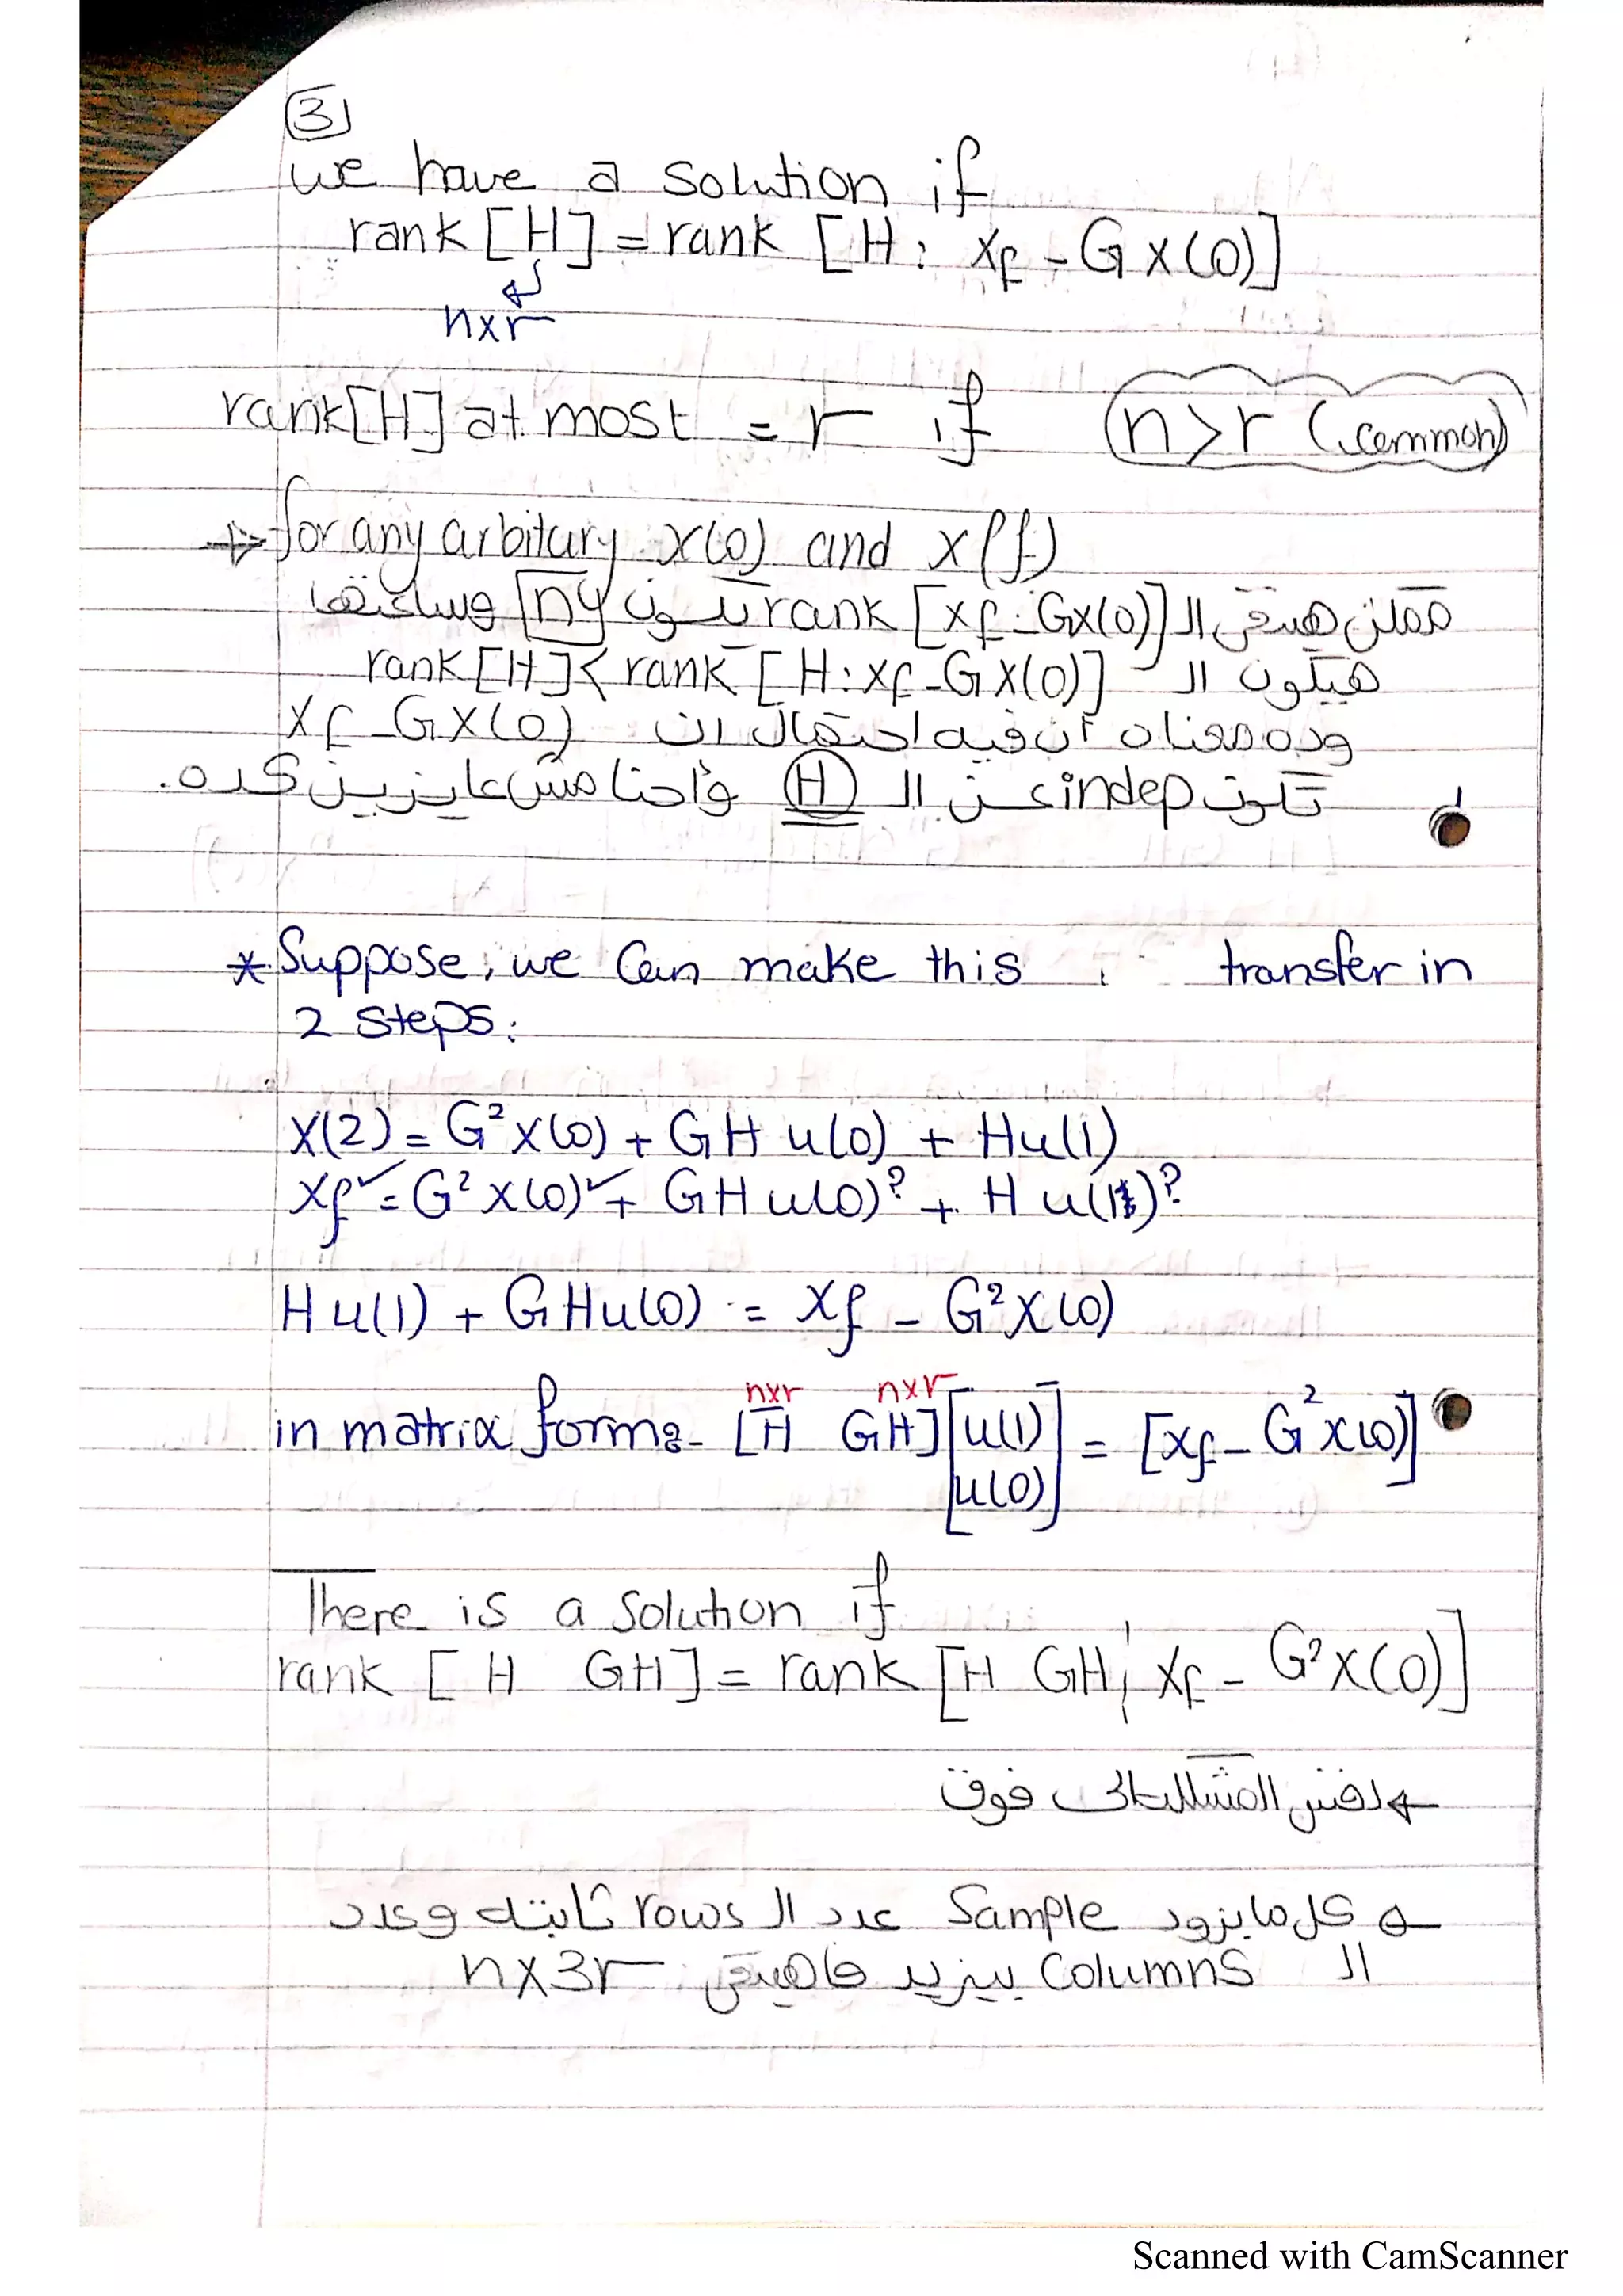 3
we have a solution if
rank [H] = rank [H : xf - G x(0)]
nxr
rank[H] at most = r if n>r (common)
for any arbitary x(0) and x(f)
ممكن هيبقى الـ rank [xf - Gx(0)] تكون n وساعتها
هيكون الـ rank[H] < rank [H : xf - G x(0)]
وده معناه أن فيه احتمال ان xf - G x(0)
تكون indep عن الـ H وأحنا مش عايزين كده.
* Suppose, we Can make this transfer in
2 steps:
x(2) = G² x(0) + G H u(0) + H u(1)
xf ✓ = G² x(0) ✓ + G H u(0)? + H u(1)?
H u(1) + G H u(0) = xf - G² x(0)
nxr nxr
in matrix form:- [H GH] [u(1) u(0)] = [xf - G² x(0)]
There is a solution if
rank [ H GH] = rank [H GH ¦ xf - G² x(0)]
لنفس المشكلة اللى فوق
كل ما يزود Sample عدد الـ rows ثابته وعدد
الـ Columns بيزيد فاهيبقى nx3r
Scanned with CamScanner